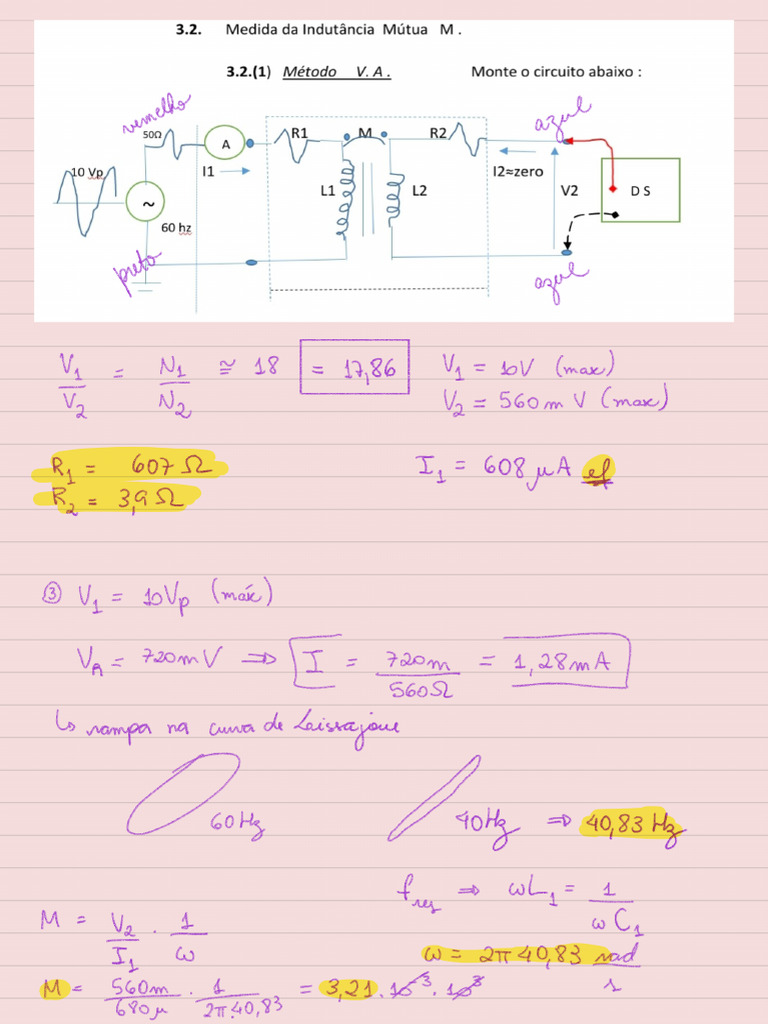 3.2. Medida da Indutância Mútua M .
3.2.(1) Método V. A . Monte o circuito abaixo :
vermelho
azul
50Ω
A
R1
M
R2
10 Vp
I1
I2≈zero
L1
L2
V2
D S
~
60 hz
preto
azul
V₁/V₂ = N₁/N₂ ≅ 18 = 17,86 V₁ = 10V (max)
V₂ = 560m V (max)
R₁ = 607 Ω I₁ = 608 μA ef
R₂ = 3,9 Ω
③ V₁ = 10Vp (máx)
V_A = 720mV ⇒ I = 720m/560Ω = 1,28mA
↳ rampa na curva de Laissajoue
60Hz 40Hz ⇒ 40,83 Hz
f_res ⇒ ωL₁ = 1/ωC₁
M = V₂/I₁ . 1/ω
ω = 2π 40,83 rad/s
M = 560m/680μ . 1/2π.40,83 = 3,21 . 10⁻³ . 10³